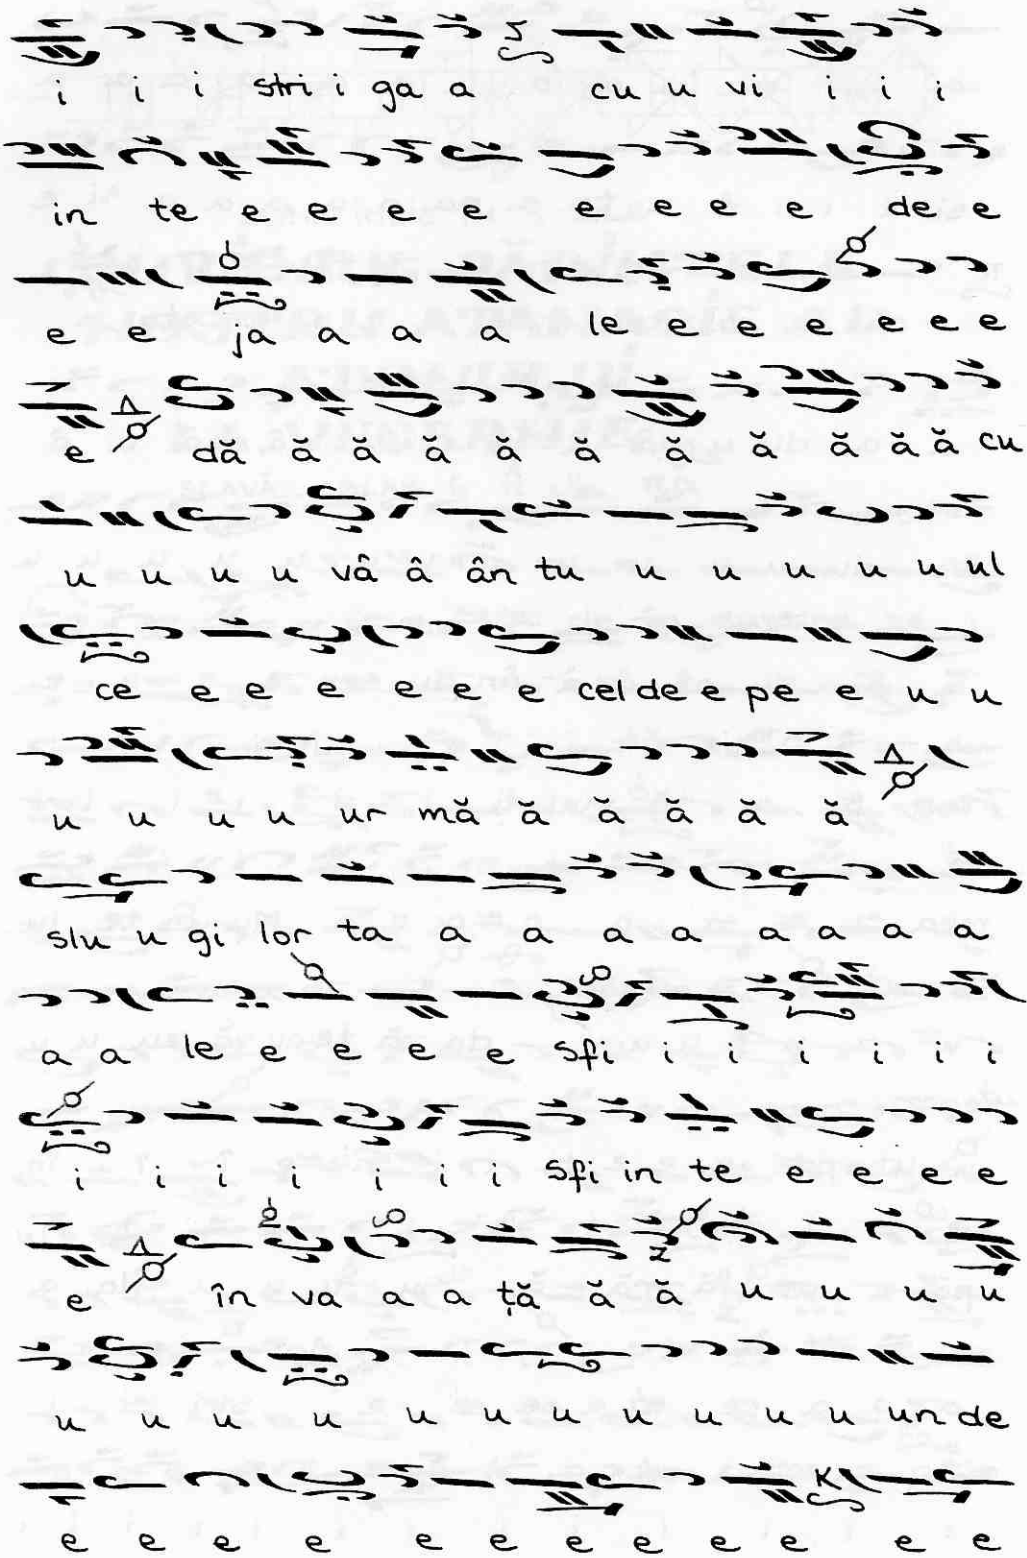 i i i stri i ga a cu u vi i i i
in te e e e e e e e e de e
e e ja a a a le e e e e e e
e dă ă ă ă ă ă ă ă ă ă ă cu
u u u u vâ â ân tu u u u u u ul
ce e e e e e e cel de e pe e u u
u u u u ur mă ă ă ă ă ă
slu u gi lor ta a a a a a a a a
a a le e e e e sfi i i i i i i
i i i i i i i sfi in te e e e e
e în va a a ță ă ă u u u u
u u u u u u u u u u u un de
e e e e e e e e e e e e